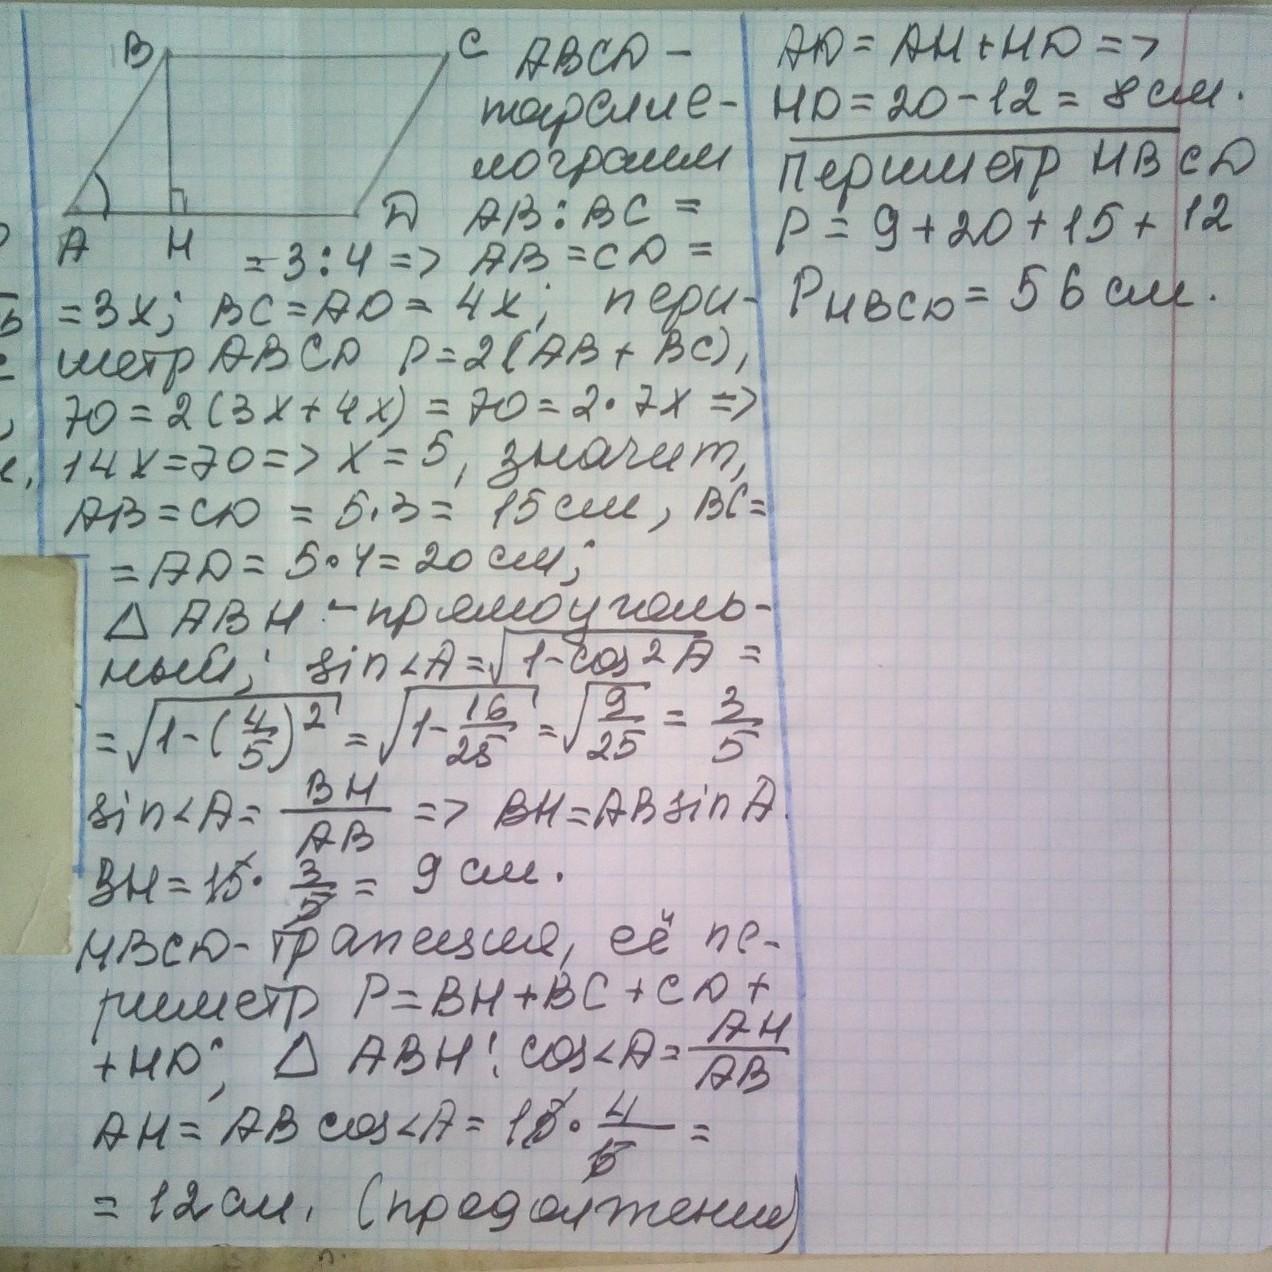 B
C
A
H
D
ABCD -
паралле-
лограмм
AB : BC =
= 3 : 4 => AB = CD =
= 3x; BC = AD = 4x; пери-
метр ABCD P = 2(AB + BC),
70 = 2(3x + 4x) = 70 = 2 · 7x =>
14x = 70 => x = 5, значит,
AB = CD = 5 · 3 = 15 см, BC =
= AD = 5 · 4 = 20 см;
△ ABH - прямоуголь-
ный; sin<A = √1 - cos²A =
= √1 - (4/5)² = √1 - 16/25 = √9/25 = 3/5
sin<A = BH/AB => BH = AB sin A.
BH = 15 · 3/5 = 9 см.
HBCD - трапеция, её пе-
риметр P = BH + BC + CD +
+ HD; △ ABH: cos<A = AH/AB
AH = AB cos<A = 15 · 4/5 =
= 12 см. (продолжение)
AD = AH + HD =>
HD = 20 - 12 = 8 см.
Периметр HBCD
P = 9 + 20 + 15 + 12
P HBCD = 56 см.